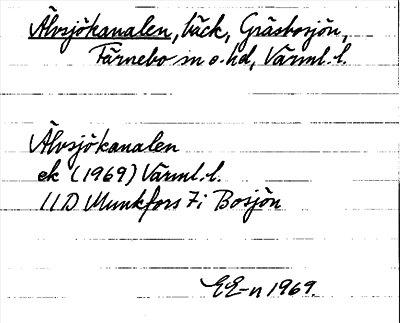 Älvsjökanalen, bäck, Gräsbosjön,
Färnebo sn o. hd, Värml. l.
Älvsjökanalen
ek (1969) Värml. l.
11D Munkfors 7i Bosjön
EE-n 1969.